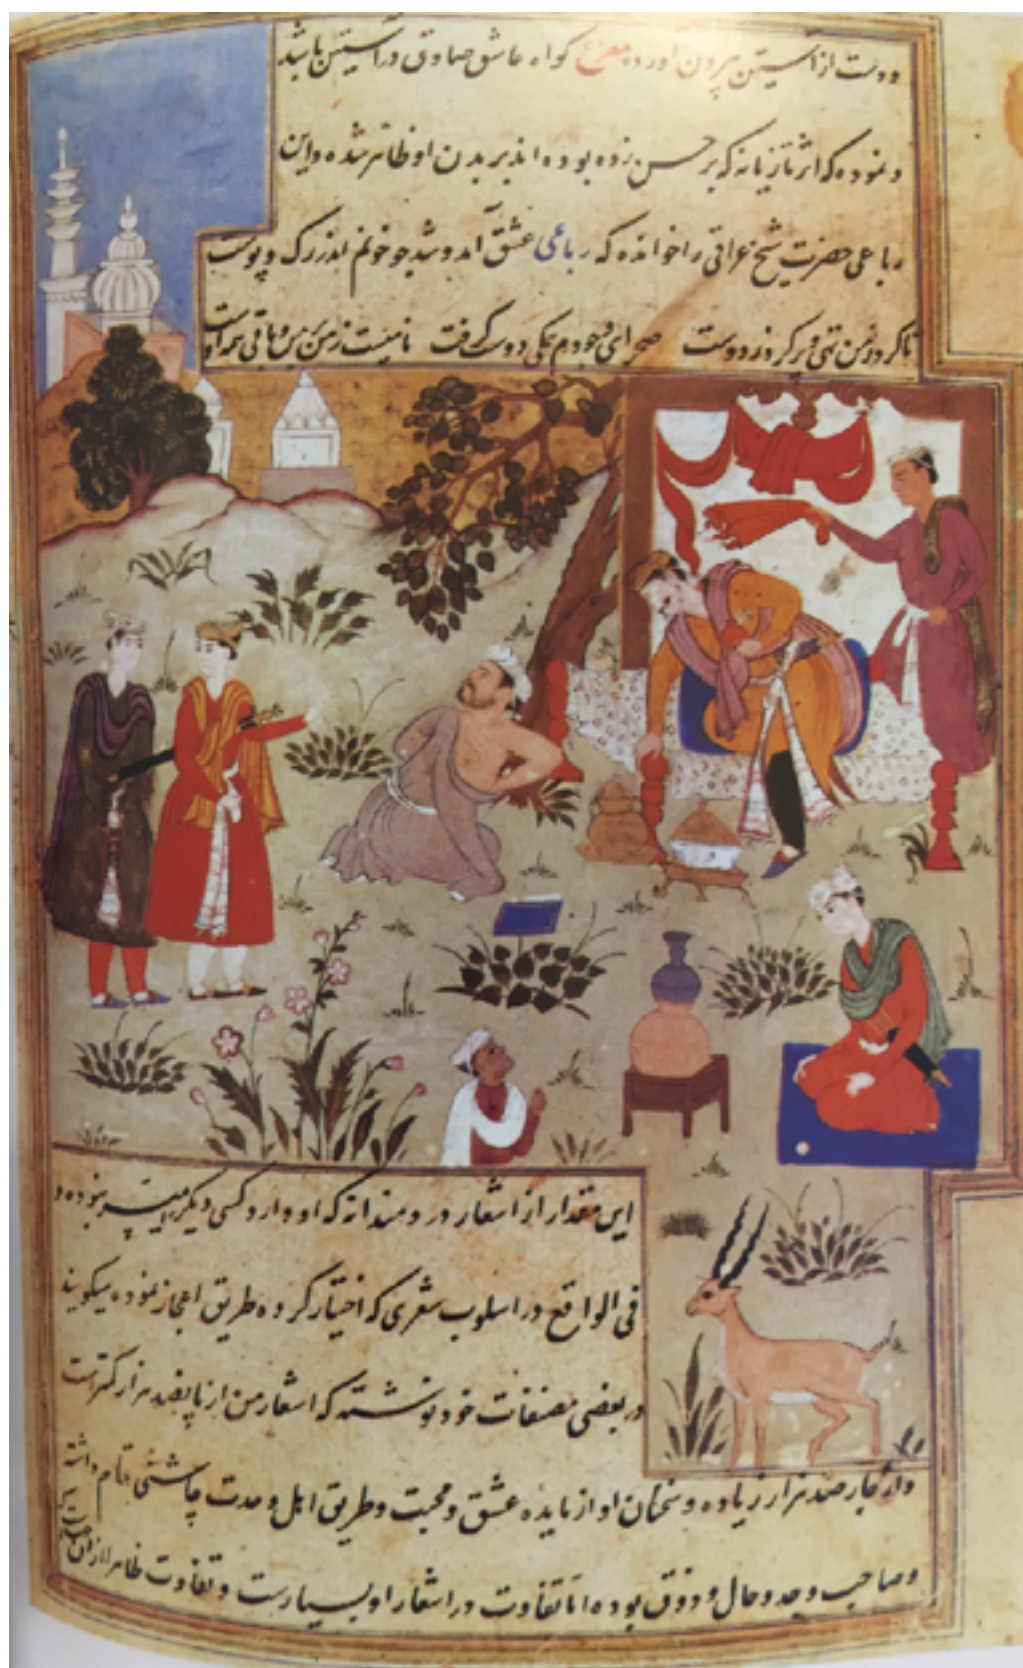 ودست از آستین بیرون آورده مصرع گواه عاشق صادق در آستین باشد
و نموده که اثر تازیانه که بر حسن زده بوده اند بر بدن او ظاهر شده و این
رباعی حضرت شیخ عراقی را خوانده که رباعی عشق آمد و شد چو خونم اندر رگ و پوست
تا کرد ز من تهی و پر کرد ز دوست صحرای وجودم همگی دوست گرفت نامیست ز من بر من و باقی همه اوست
این مقدار از اشعار دردمندانه که او دارد کسی دیگر نبوده و
فی الواقع در اسلوب شعری که اختیار کرده طریق اعجاز نموده میگویند
در بعضی مصنفات خود نوشته که اشعار من از پانصد هزار کمترست
و از چهارصد هزار زیاده و سخنان او از مایده عشق و محبت و طریق اهل وحدت چاشنی تمام داشته
و صاحب وجد و حال و ذوق بوده اما تفاوت در اشعار او بسیارست و تفاوت ظاهرا از آن